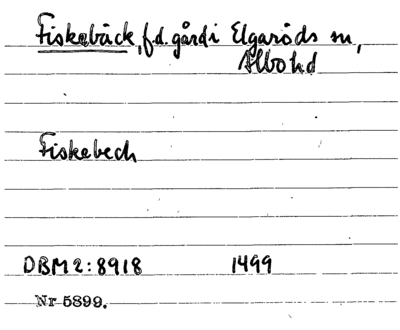 Fiskebäck, f.d. gård i Elgaröds sn,
Albo hd
Fiskebech
DBM2:8918 1499
Nr 5899.